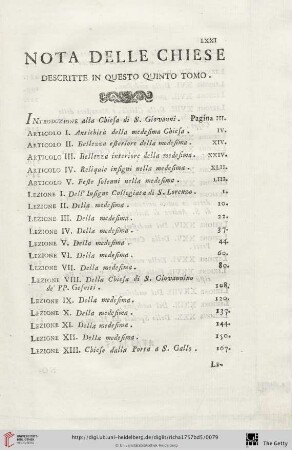 LXXI
NOTA DELLE CHIESE
DESCRITTE IN QUESTO QUINTO TOMO.
INTRODUZIONE alla Chiesa di S. Giovanni. Pagina III.
ARTICOLO I. Antichità della medesima Chiesa. IV.
ARTICOLO II. Bellezza esteriore della medesima. XIV.
ARTICOLO III. Bellezza interiore della medesima. XXIV.
ARTICOLO IV. Reliquie insigni nella medesima. XLII.
ARTICOLO V. Feste solenni nella medesima. LIII.
LEZIONE I. Dell' Insigne Collegiata di S. Lorenzo. 1.
LEZIONE II. Della medesima. 10.
LEZIONE III. Della medesima. 22.
LEZIONE IV. Della medesima. 37.
LEZIONE V. Della medesima. 44.
LEZIONE VI. Della medesima. 60.
LEZIONE VII. Della medesima. 80.
LEZIONE VIII. Della Chiesa di S. Giovannino
de' PP. Gesuiti. 108.
LEZIONE IX. Della medesima. 120.
LEZIONE X. Della medesima. 137.
LEZIONE XI. Della medesima. 144.
LEZIONE XII. Della medesima. 150.
LEZIONE XIII. Chiese dalla Porta a S. Gallo. 167.
Le-
http://digi.ub.uni-heidelberg.de/diglit/richa1757bd5/0079
© Universitätsbibliothek Heidelberg
The Getty